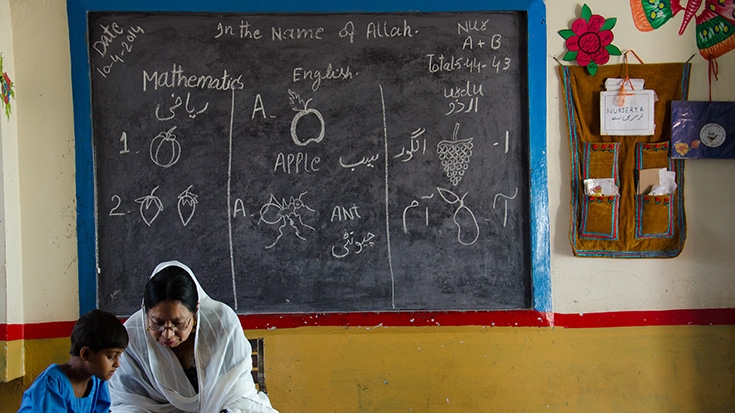 Date
10-4-2014
In the Name of Allah.
Nur
A + B
Total=44-43
Mathematics
ریاضی
English.
urdu
اردو
1.
A.
APPLE
سیب
انگور
-ا
2.
A.
ANT
چیونٹی
آم
-آ
NURSERY.A